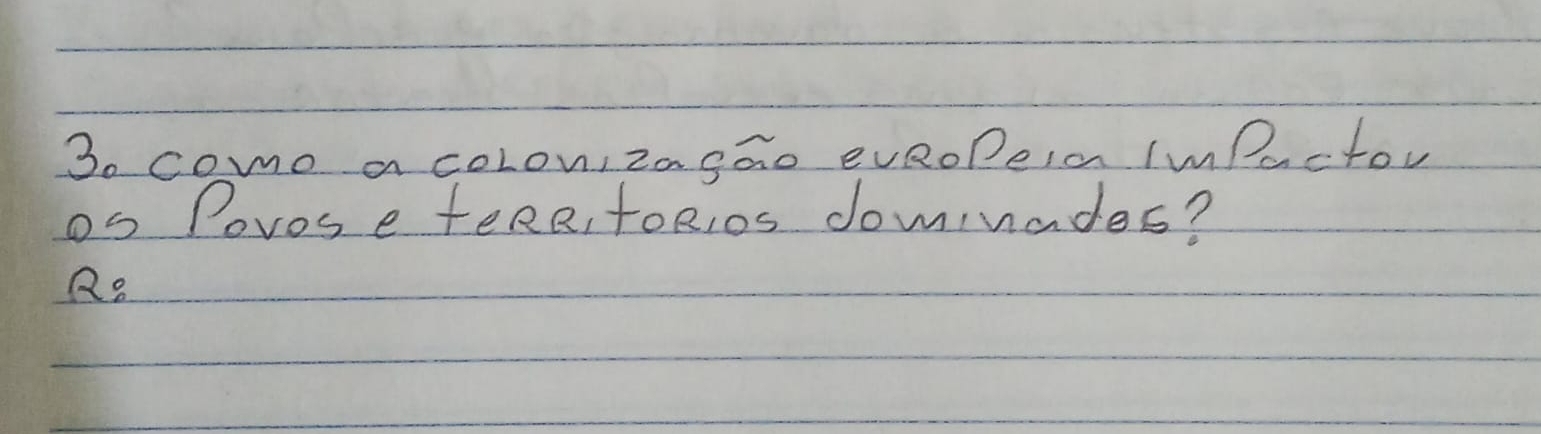 3. como a colonização europeia impactou
os Povos e territorios dominados?
R: